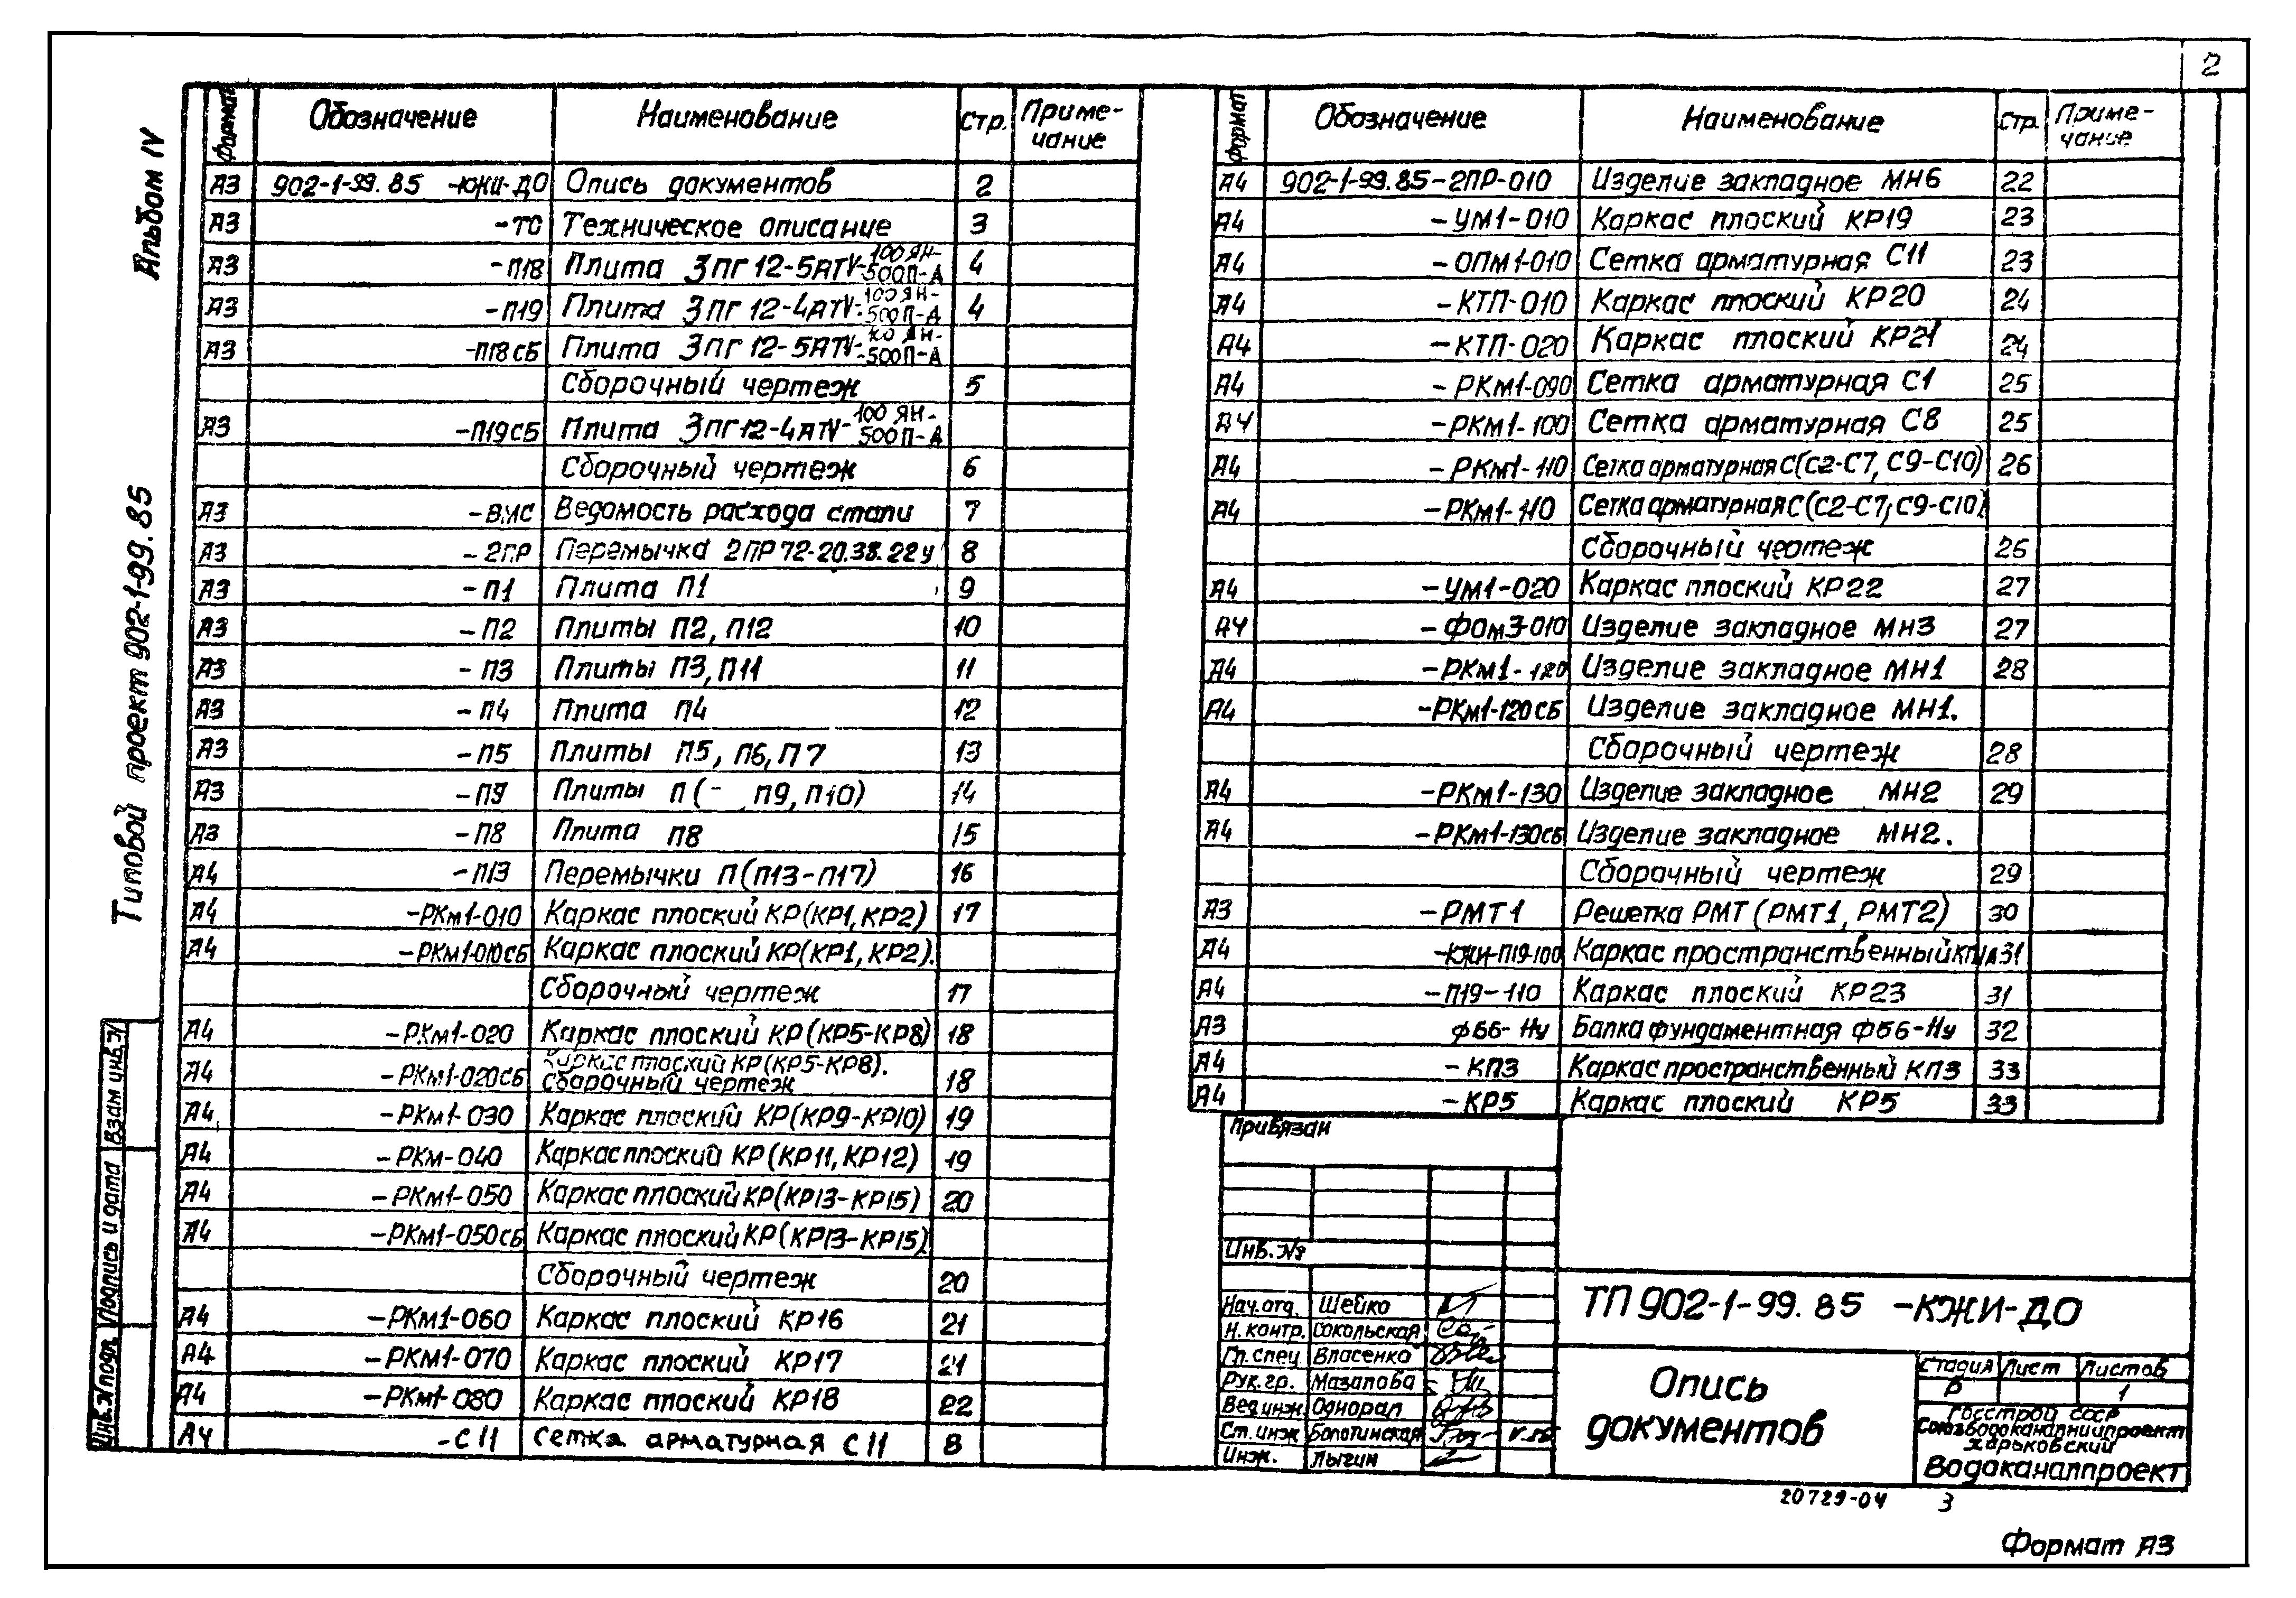 2
Альбом IV
Типовой проект 902-1-99.85
Формат Обозначение Наименование Стр. Приме-
чание
А3 902-1-99.85 -КЖИ-ДО Опись документов 2
А3 -ТО Техническое описание 3
А3 -П18 Плита 3ПГ12-5АТV-100ЯН-
500П-А 4
А3 -П19 Плита 3ПГ12-4АТV-100ЯН-
500П-А 4
А3 -П18СБ Плита 3ПГ12-5АТV-100ЯН-
500П-А
Сборочный чертеж 5
А3 -П19СБ Плита 3ПГ12-4АТV-100ЯН-
500П-А
Сборочный чертеж 6
А3 -ВМС Ведомость расхода стали 7
А3 -2ПР Перемычка 2ПР72-20.38.22у 8
А3 -П1 Плита П1 9
А3 -П2 Плиты П2, П12 10
А3 -П3 Плиты П3, П11 11
А3 -П4 Плита П4 12
А3 -П5 Плиты П5, П6, П7 13
А3 -П9 Плиты П(- П9, П10) 14
А3 -П8 Плита П8 15
А4 -П13 Перемычки П(П13-П17) 16
А4 -РКм1-010 Каркас плоский КР(КР1, КР2) 17
А4 -РКм1-010СБ Каркас плоский КР(КР1, КР2).
Сборочный чертеж 17
А4 -РКм1-020 Каркас плоский КР(КР5-КР8) 18
А4 -РКм1-020СБ Каркас плоский КР(КР5-КР8).
Сборочный чертеж 18
А4 -РКм1-030 Каркас плоский КР(КР9-КР10) 19
А4 -РКм-040 Каркас плоский КР(КР11, КР12) 19
А4 -РКм1-050 Каркас плоский КР(КР13-КР15) 20
А4 -РКм1-050СБ Каркас плоский КР(КР13-КР15)
Сборочный чертеж 20
А4 -РКм1-060 Каркас плоский КР16 21
А4 -РКМ1-070 Каркас плоский КР17 21
А4 -РКм1-080 Каркас плоский КР18 22
А4 -С11 Сетка арматурная С11 8
Формат Обозначение Наименование Стр. Приме-
чание
А4 902-1-99.85-2ПР-010 Изделие закладное МН6 22
А4 -УМ1-010 Каркас плоский КР19 23
А4 -ОПм1-010 Сетка арматурная С11 23
А4 -КТП-010 Каркас плоский КР20 24
А4 -КТП-020 Каркас плоский КР21 24
А4 -РКм1-090 Сетка арматурная С1 25
А4 -РКМ1-100 Сетка арматурная С8 25
А4 -РКм1-110 Сетка арматурная С(С2-С7, С9-С10) 26
А4 -РКм1-110 Сетка арматурная С(С2-С7, С9-С10)
Сборочный чертеж 26
А4 -УМ1-020 Каркас плоский КР22 27
А4 -ФОм3-010 Изделие закладное МН3 27
А4 -РКм1-120 Изделие закладное МН1 28
А4 -РКм1-120СБ Изделие закладное МН1.
Сборочный чертеж 28
А4 -РКм1-130 Изделие закладное МН2 29
А4 -РКм1-130СБ Изделие закладное МН2.
Сборочный чертеж 29
А3 -РМТ1 Решетка РМТ(РМТ1, РМТ2) 30
А4 -КЖИ-П19-100 Каркас пространственный 31
А4 -П19-110 Каркас плоский КР23 31
А3 ФБ6-Ну Балка фундаментная ФБ6-Ну 32
А4 -КП3 Каркас пространственный КП3 33
А4 -КР5 Каркас плоский КР5 33
Привязан
Инв.№
Нач.отд. Шейко
Н.контр. Сокольская
Гл.спец Власенко
Рук.гр. Мазалова
Вед.инж. Однорал
Ст.инж Болотинская
Инж. Лыгин
ТП 902-1-99.85 -КЖИ-ДО
Опись
документов
Стадия Лист Листов
Р 1
Госстрой СССР
Союзводоканалниипроект
Харьковский
Водоканалпроект
Инв.№подл. Подпись и дата Взам инв.№
20729-04 3
Формат А3